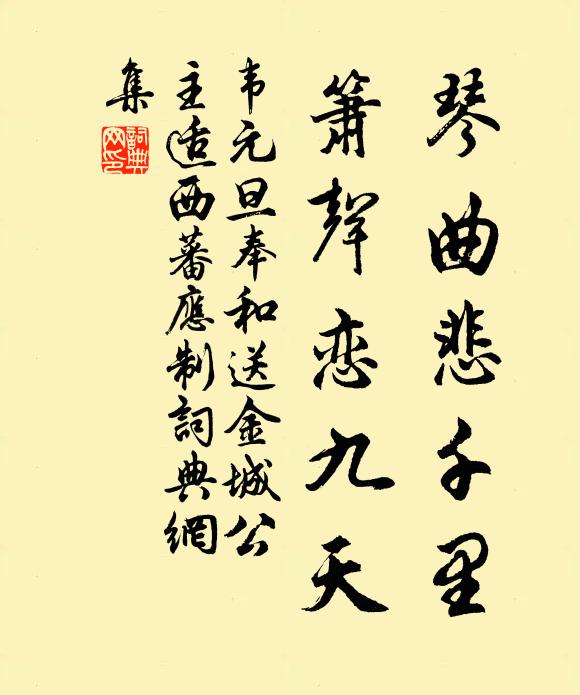 琴曲悲千里
箫聲恋九天
韦元旦奉和送金城公
主适西蕃應制詞典網
集
詞典網印